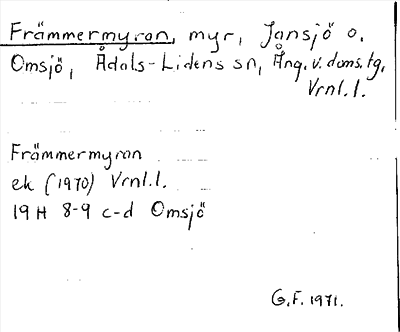 Främmermyran, myr, Jansjö o.
Omsjö, Ådals-Lidens sn, Ång. v. doms.tg,
Vrnl.l.
Främmermyran
ek (1970) Vrnl.l.
19 H 8-9 c-d Omsjö
G.F. 1971.